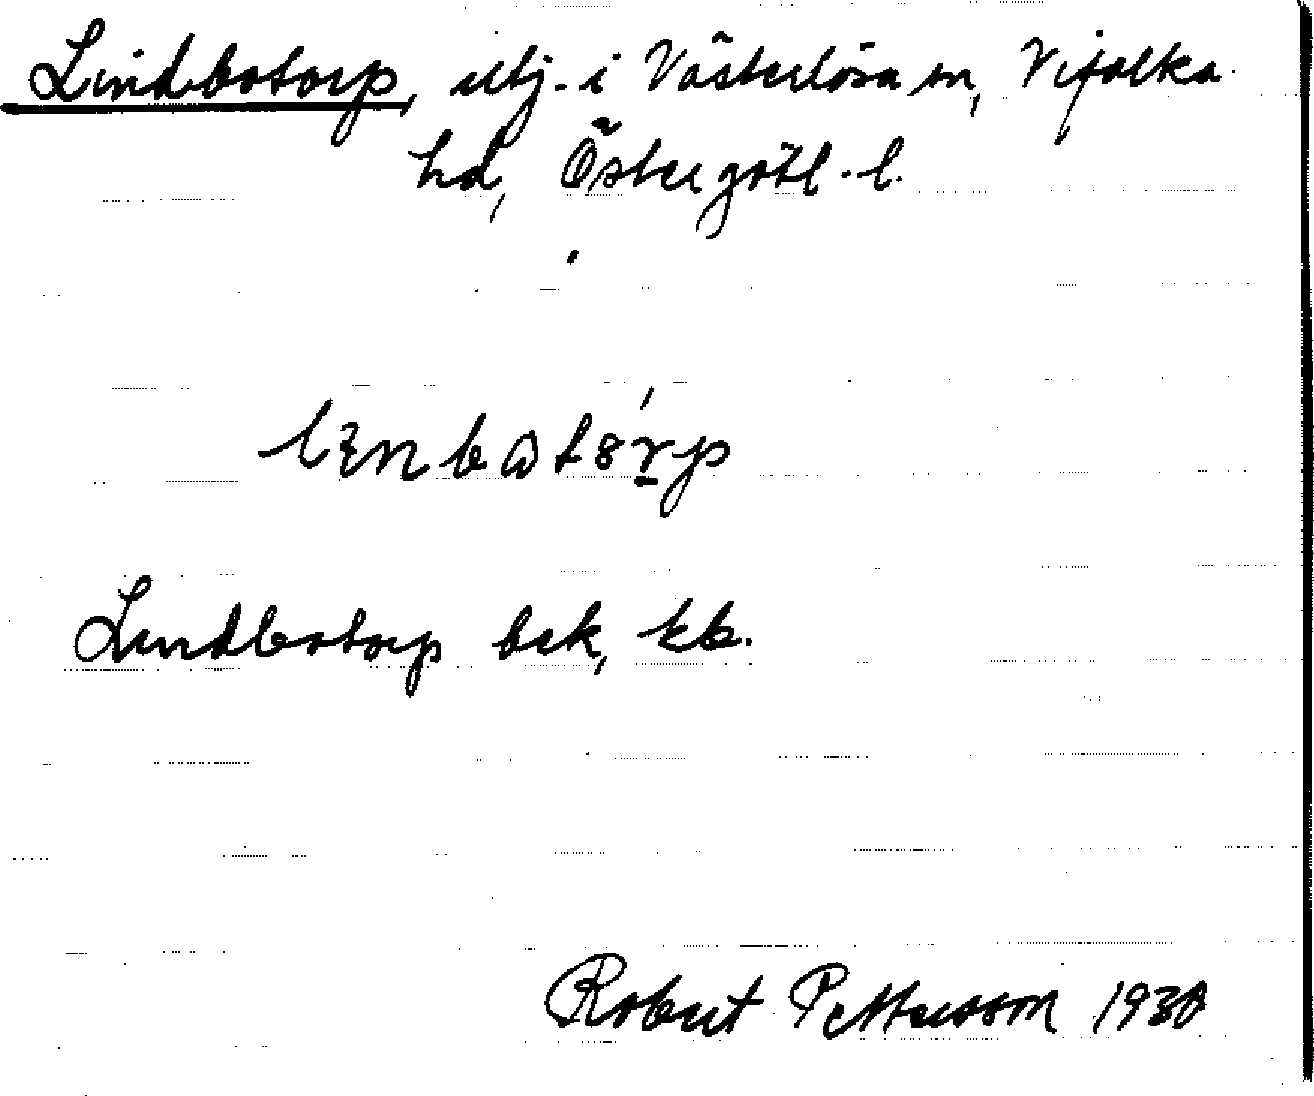 Lindbotorp, utj. i Västerlösa sn, Vifolka
hd, Östergötl. l.
Lindbotorp bek, kk.
Robert Pettersson 1930